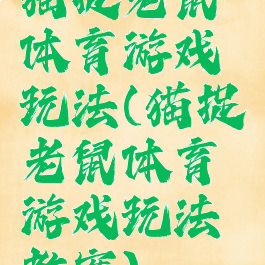 猫捉老鼠
体育游戏
玩法(猫捉
老鼠体育
游戏玩法
教案)